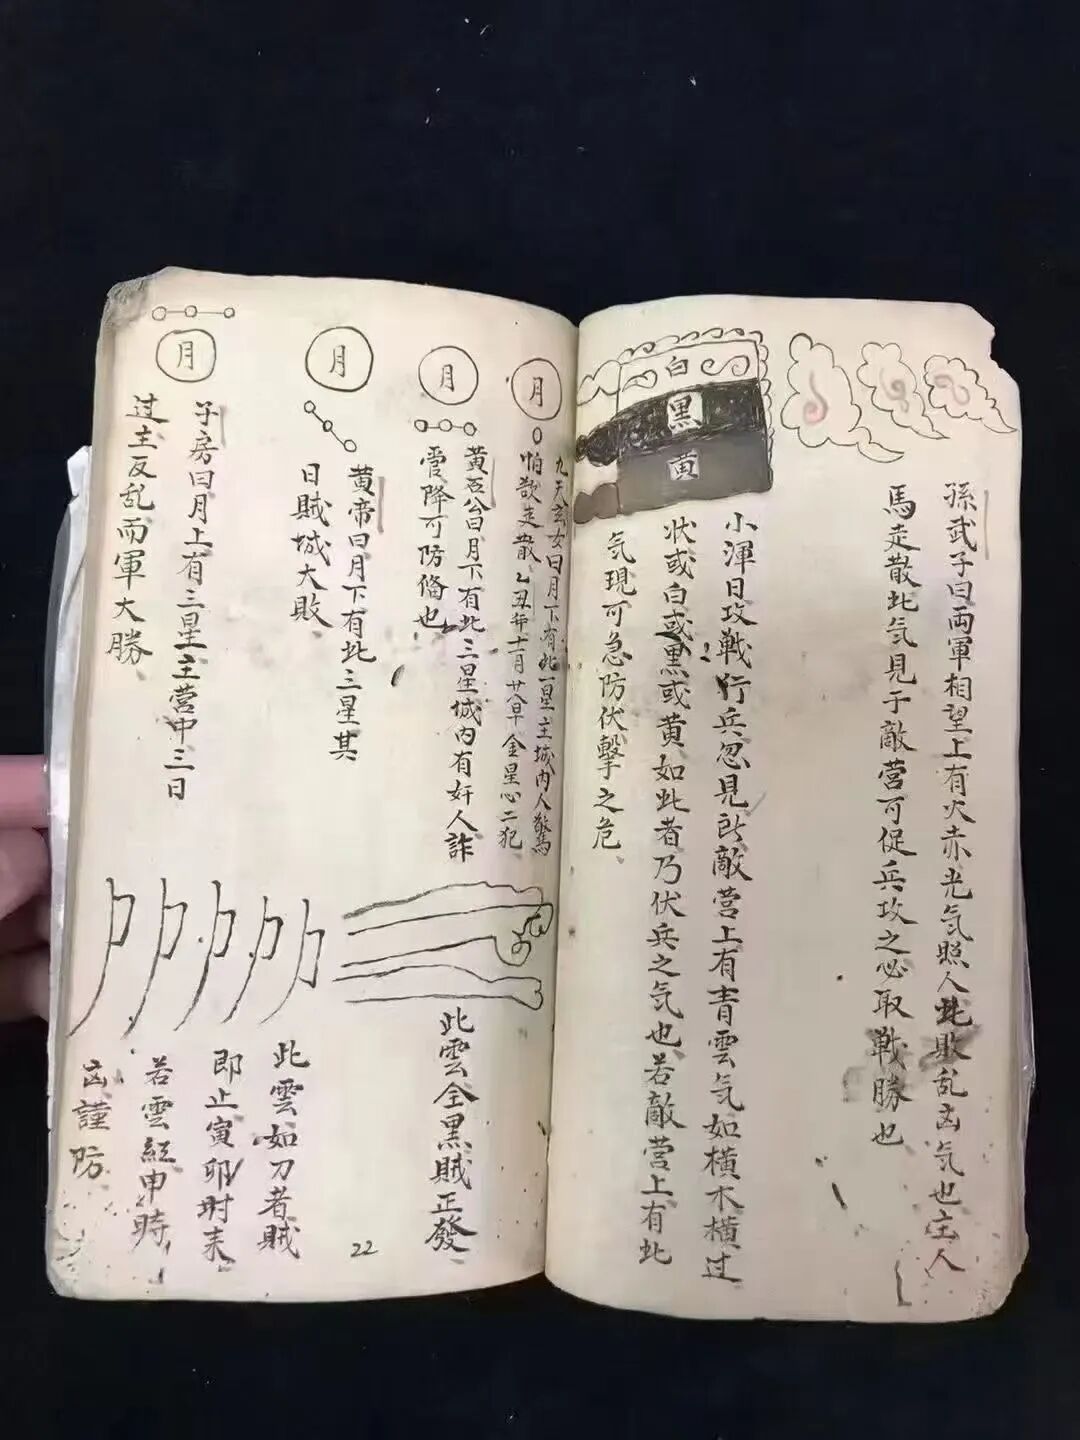 孫武子曰両軍相望上有火赤光气照人此敗乱凶气也主人
馬走散此気見于敵营可促兵攻之必取戰勝也
白
黑
黄
小渾日攻戰行兵忽見於敵营上有青雲気如横木横过
状或白或黑或黄如此者乃伏兵之気也若敵营上有此
気現可急防伏擊之危
月
九天玄女曰月下有此一星主城内人驚
怕散走散乙丑年十一月廿八早金星心二犯
月
黄石公曰月下有此三星城内有奸人詐
降可防偹也
月
黄帝曰月下有此三星其
日賊城大敗
月
子房曰月上有三星主营中三日
过主反乱而軍大勝
此雲全黑賊正發
此雲如刀者賊
即止寅卯时来
若雲紅申時
凶謹防
22